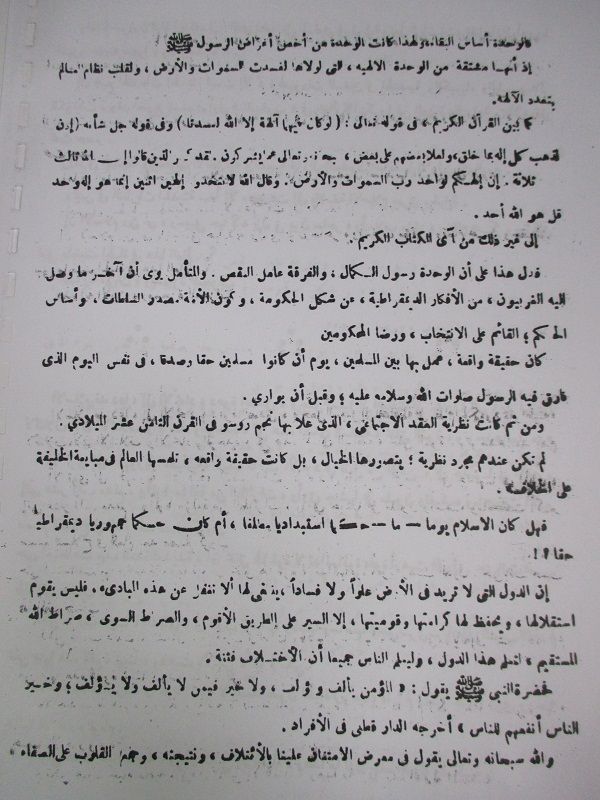 فالوحدة أساس البقاء، ولهذا كانت الوحدة من أخص أغراض الرسول ﷺ
إذ أنها مشتقة من الوحدة الالهية، التى لولاها لفسدت السموات والأرض، ولقلب نظام العالم
بتعدد الآلهة.
كما بين القرآن الكريم، فى قوله تعالى: (لو كان فيهما آلهة إلا الله لفسدتا) وفى قوله جل شأنه (إذن
لذهب كل إله بما خلق، ولعلا بعضهم على بعض، سبحانه وتعالى عما يشركون. لقد كفر الذين قالوا إن الله ثالث
ثلاثة. إن إلهكم لواحد رب السموات والأرض. وقال الله لا تتخذوا إلهين اثنين إنما هو إله واحد
قل هو الله أحد.
إلى غير ذلك من آى الكتاب الكريم.
فدل هذا على أن الوحدة رسول الكمال، والفرقة عامل النقص. والمتأمل يرى أن آخر ما وصل
اليه الغربيون، من الأفكار الديمقراطية، عن شكل الحكومة، وكون الأمة مصدر السلطات، وأساس
الحكم؛ القائم على الانتخاب، ورضا المحكومين
كان حقيقة واقعة، عمل بها بين المسلمين، يوم أن كانوا مسلمين حقا وصدقا، فى نفس اليوم الذى
فارق فيه الرسول صلوات الله وسلامه عليه؛ وقبل أن يوارى.
ومن ثم كانت نظرية العقد الاجتماعى، الذى علا بها نجم روسو فى القرن الثامن عشر الميلادى.
لم تكن عندهم مجرد نظرية؛ يتصورها الخيال، بل كانت حقيقة واقعه، تلمسها العالم فى مبايعة الخليفة
على الخلافة.
فهل كان الاسلام يوما — ما — حكما استبداديا مطلقا، أم كان حكما جمهوريا ديمقراطيا
حقا؟!.
إن الدول التى لا تريد فى الأرض علوا ولا فسادا، ينبغى لها ألا تغفل عن هذه المبادىء. فليس يقوم
استقلالها، ويحفظ لها كرامتها وقوميتها، إلا السير على الطريق الأقوم، والصراط السوى، صراط الله
المستقيم، لتعلم هذا الدول، وليعلم الناس جميعا أن الأختلاف فتنة.
فحضرة النبى ﷺ يقول: «المؤمن يألف ويؤلف، ولا خير فيمن لا يألف ولا يؤلف؛ وخير
الناس أنفعهم للناس» أخرجه الدار قطنى فى الأفراد.
والله سبحانه وتعالى يقول فى معرض الامتنان علينا بالأئتلاف، ونتيجته، وجمع القلوب على الصفاء «